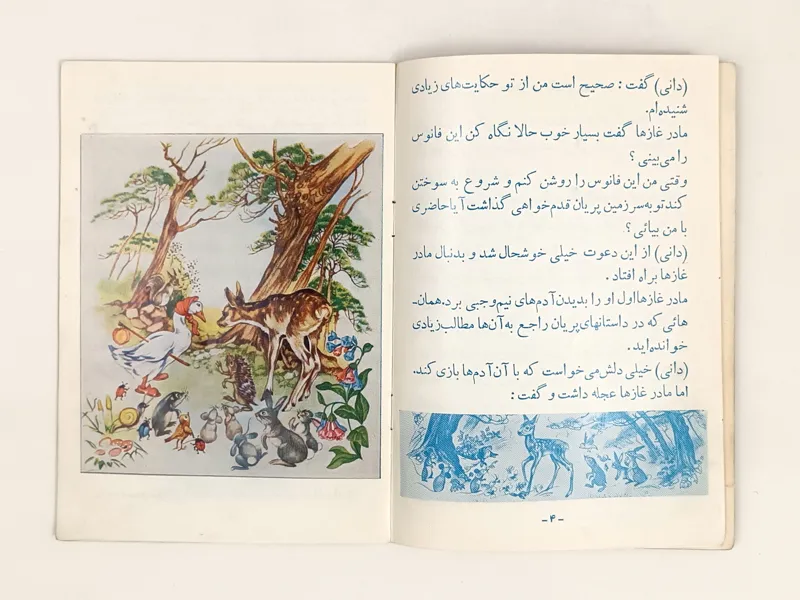 (دانی) گفت : صحیح است من از تو حکایت‌های زیادی
شنیده‌ام.
مادر غازها گفت بسیار خوب حالا نگاه کن این فانوس
را می‌بینی ؟
وقتی من این فانوس را روشن کنم و شروع به سوختن
کند تو به سرزمین پریان قدم خواهی گذاشت آیا حاضری
با من بیائی ؟
(دانی) از این دعوت خیلی خوشحال شد و بدنبال مادر
غازها براه افتاد .
مادر غازها اول او را بدیدن آدم‌های نیم‌وجبی برد.همان-
هائی که در داستانهای پریان راجع به آن‌ها مطالب زیادی
خوانده‌اید.
(دانی) خیلی دلش می‌خواست که با آن آدم‌ها بازی کند.
اما مادر غازها عجله داشت و گفت :
-۴-